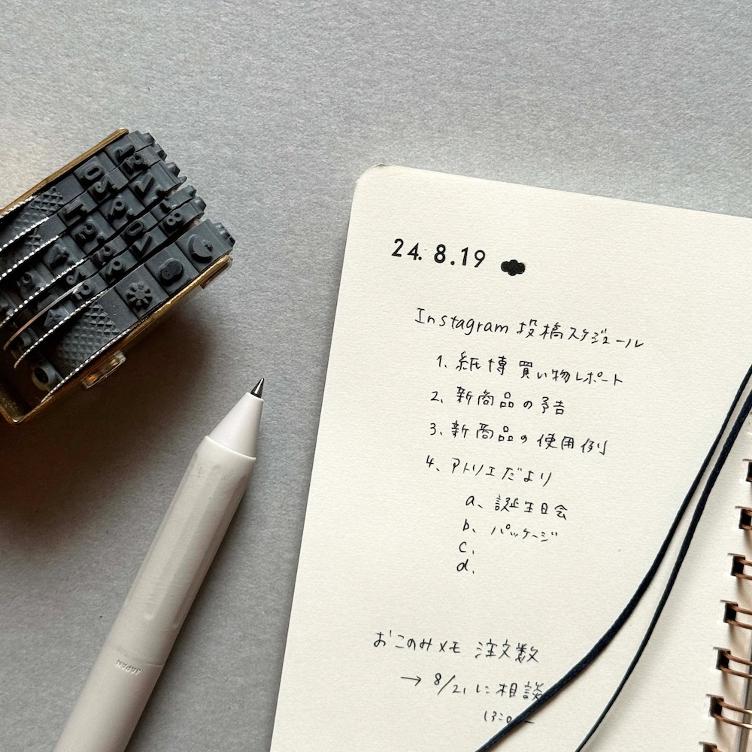 24. 8.19
Instagram 投稿スケジュール
1. 紙博 買い物レポート
2. 新商品の予告
3. 新商品の使用例
4. アトリエだより
a. 誕生日会
b. パッケージ
c.
d.
おこのみメモ 注文数
→ 8/21 に相談
JAPAN